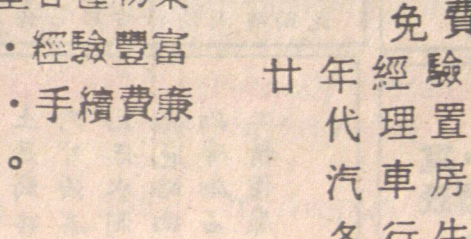 ・經驗豐富
・手續費廉
。
免費
廿年經驗
代理置
汽車房
各行生